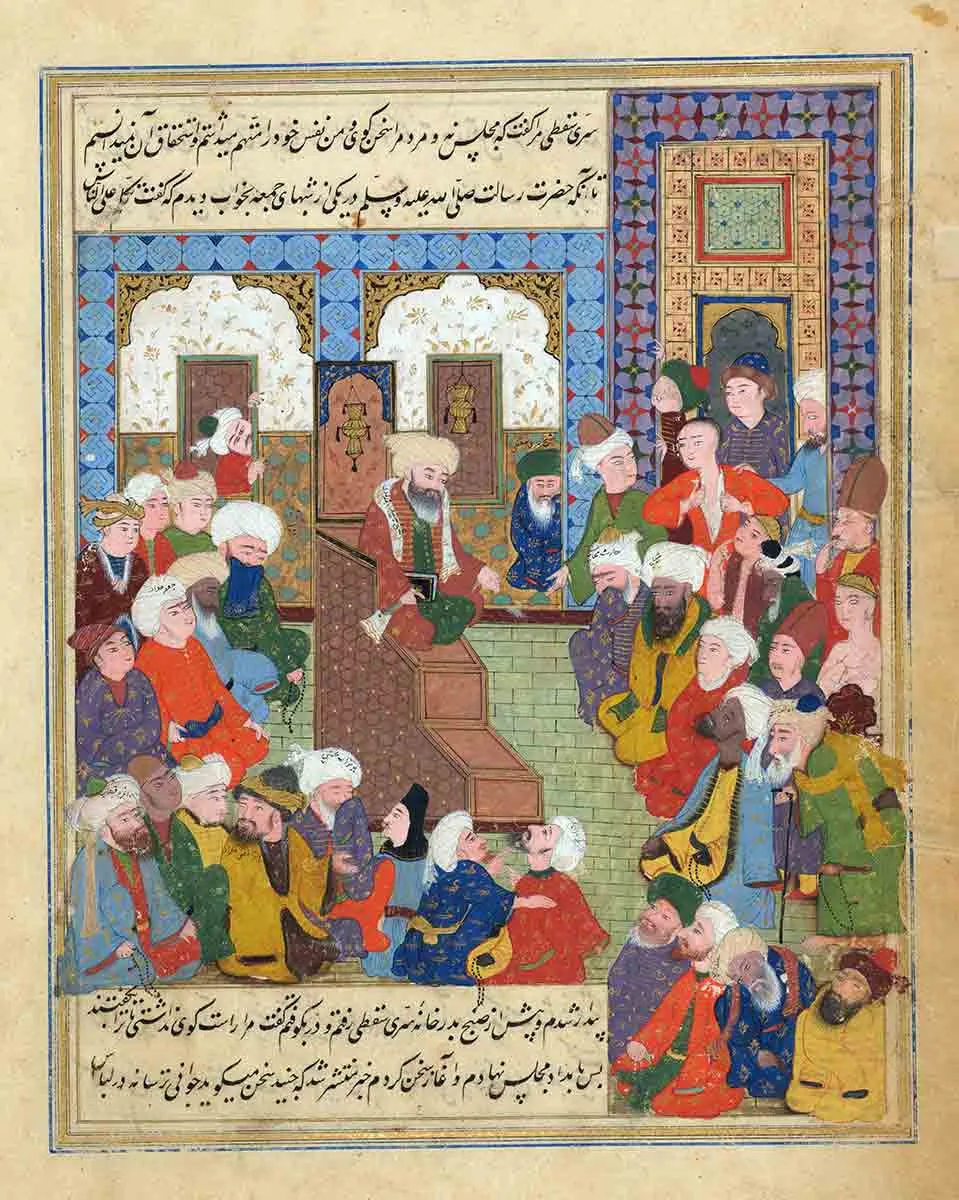 سری سقطی مر گفت که مجلس نه و مردم را سخن کوی و من نفس خود را متهم میداشتم و استحقاق آن نمیدانستم
تا آنکه حضرت رسالت صلی الله علیه وسلم در یکی از شبهای جمعه بخواب دیدم که گفت تکلم علی الناس
بیدار شدم و پیش از صبح بدر خانهٔ سری سقطی رفتم و در بکوفتم گفت مرا راست کوی نداشتی تا ترا نکفتند
پس بامداد مجلس نهادم و آغاز سخن کردم خبر منتشر شد که جنید سخن میکوید جوانی ترسا نه در لباس